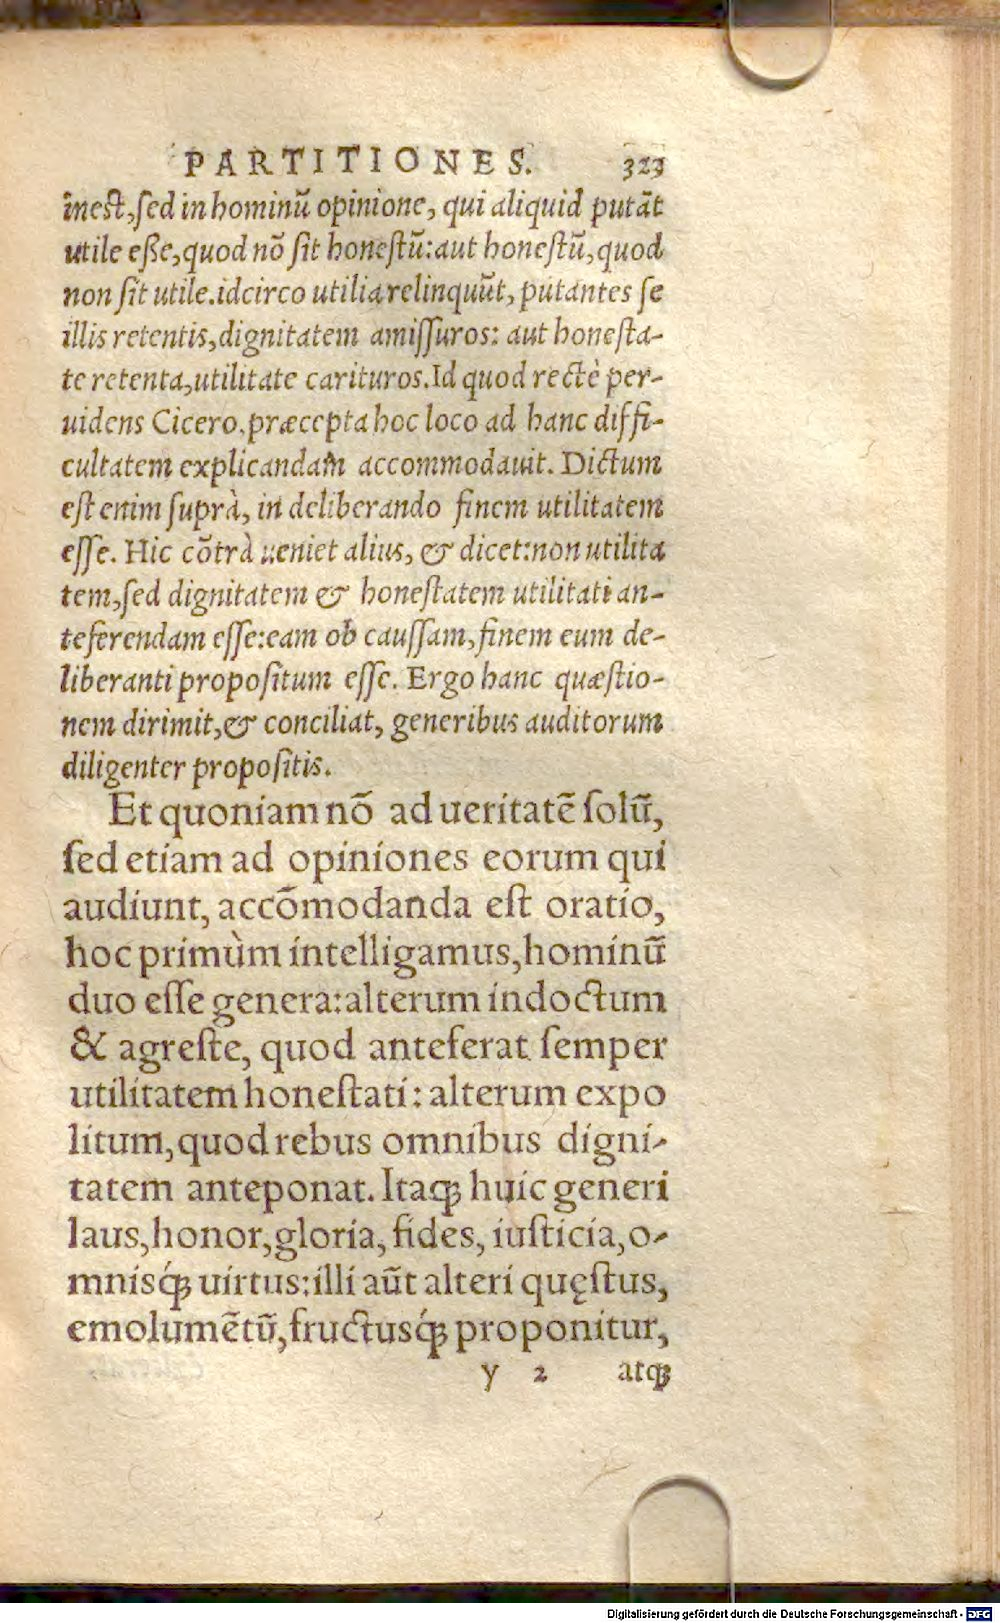 PARTITIONES. 323
inest, sed in hominū opinione, qui aliquid putāt
utile eße, quod nō sit honestū: aut honestū, quod
non sit utile. idcirco utilia relinquūt, putantes se
illis retentis, dignitatem amissuros: aut honesta-
te retenta, utilitate carituros. Id quod rectè per-
uidens Cicero, præcepta hoc loco ad hanc diffi-
cultatem explicandam accommodauit. Dictum
est enim suprà, in deliberando finem utilitatem
esse. Hic cōtrà ueniet alius, & dicet: non utilita
tem, sed dignitatem & honestatem utilitati an-
teferendam esse: eam ob caussam, finem eum de-
liberanti propositum esse. Ergo hanc quæstio-
nem dirimit, & conciliat, generibus auditorum
diligenter propositis.
Et quoniam nō ad ueritatē solū,
sed etiam ad opiniones eorum qui
audiunt, accōmodanda est oratio,
hoc primùm intelligamus, hominū
duo esse genera: alterum indoctum
& agreste, quod anteferat semper
utilitatem honestati: alterum expo
litum, quod rebus omnibus digni-
tatem anteponat. Itaq; huic generi
laus, honor, gloria, fides, iusticia, o-
mnisq́; uirtus: illi aūt alteri quęstus,
emolumētū, fructusq́; proponitur,
y 2 atq;
Digitalisierung gefördert durch die Deutsche Forschungsgemeinschaft - DFG